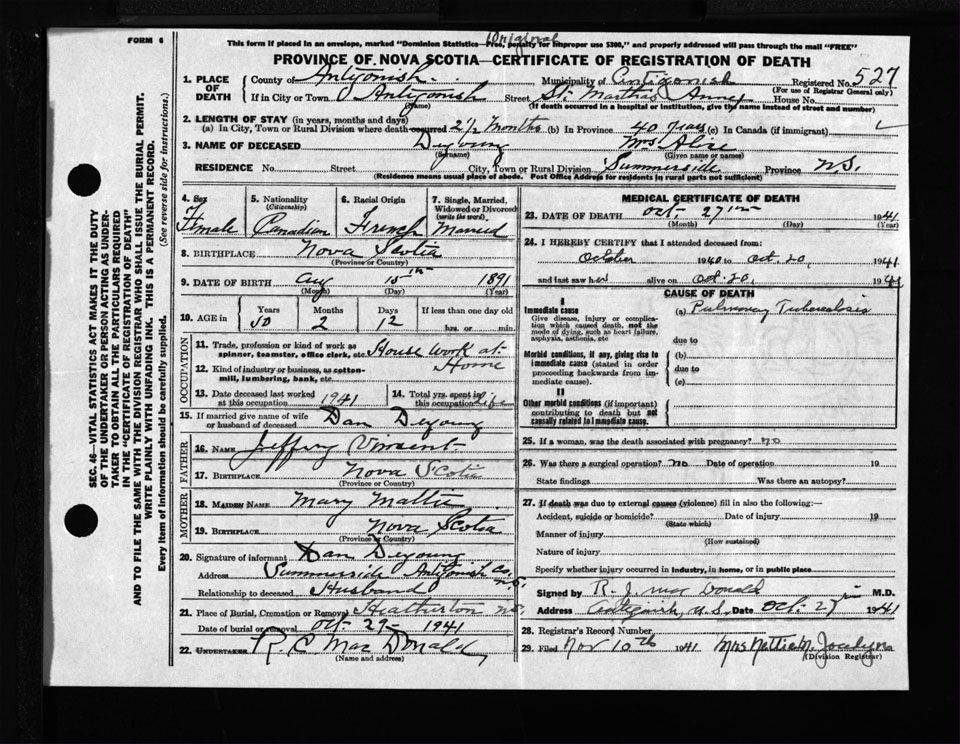 Original
FORM 6
This form if placed in an envelope, marked "Dominion Statistics—Free, penalty for improper use $300," and properly addressed will pass through the mail "FREE"
PROVINCE OF NOVA SCOTIA—CERTIFICATE OF REGISTRATION OF DEATH
SEC. 46—VITAL STATISTICS ACT MAKES IT THE DUTY
OF THE UNDERTAKER OR PERSON ACTING AS UNDER-
TAKER TO OBTAIN ALL THE PARTICULARS REQUIRED
IN THE "CERTIFICATE OF REGISTRATION OF DEATH"
AND TO FILE THE SAME WITH THE DIVISION REGISTRAR WHO SHALL ISSUE THE BURIAL PERMIT.
WRITE PLAINLY WITH UNFADING INK. THIS IS A PERMANENT RECORD.
Every item of information should be carefully supplied. (See reverse side for instructions.)
1. PLACE OF DEATH
County of Antigonish Municipality of Antigonish Registered No. 527
(For use of Registrar General only)
If in City or Town Antigonish Street St. Marthas House No.
(Name) (If death occurred in a hospital or institution, give the name instead of street and number)
2. LENGTH OF STAY (in years, months and days)
(a) In City, Town or Rural Division where death occurred 2½ Months (b) In Province 40 years (c) In Canada (if immigrant)
3. NAME OF DECEASED Deyoung Mrs Alice
(Surname) (Given name or names)
RESIDENCE No. Street City, Town or Rural Division Summerside Province N.S.
(Residence means usual place of abode. Post Office Address for residents in rural parts not sufficient)
4. Sex Female
5. Nationality (Citizenship) Canadian
6. Racial Origin French
7. Single, Married, Widowed or Divorced (write the word) Married
8. BIRTHPLACE Nova Scotia
(Province or Country)
9. DATE OF BIRTH Aug 15th 1891
(Month) (Day) (Year)
10. AGE in Years 50 Months 2 Days 12 If less than one day old
hrs. or min.
OCCUPATION
11. Trade, profession or kind of work as spinner, teamster, office clerk, etc. House Work at Home
12. Kind of industry or business, as cotton-mill, lumbering, bank, etc.
13. Date deceased last worked at this occupation 1941
14. Total yrs. spent in this occupation Life
15. If married give name of wife or husband of deceased Dan Deyoung
FATHER
16. NAME Jeffery Vincent
17. BIRTHPLACE Nova Scotia
(Province or Country)
MOTHER
18. MAIDEN NAME Mary Mattie
19. BIRTHPLACE Nova Scotia
(Province or Country)
20. Signature of informant Dan Deyoung
Address Summerside Antigonish Co. N.S.
Relationship to deceased Husband
21. Place of Burial, Cremation or Removal Heatherton N.S.
Date of burial or removal Oct-29-1941
22. UNDERTAKER R. C. Mac Donald
(Name and address)
MEDICAL CERTIFICATE OF DEATH
23. DATE OF DEATH Oct. 27th 1941
(Month) (Day) (Year)
24. I HEREBY CERTIFY that I attended deceased from:
October 1940 to Oct. 20, 1941
and last saw her alive on Oct. 20, 1941
CAUSE OF DEATH
I
Immediate cause
Give disease, injury or complication which caused death, not the mode of dying, such as heart failure, asphyxia, asthenia, etc
(a) Pulmonary Tuberculosis
due to
Morbid conditions, if any, giving rise to immediate cause (stated in order proceeding backwards from immediate cause).
(b)
due to
(c)
II
Other morbid conditions (if important) contributing to death but not causally related to immediate cause.
25. If a woman, was the death associated with pregnancy? no
26. Was there a surgical operation? no Date of operation 19
State findings Was there an autopsy?
27. If death was due to external causes (violence) fill in also the following:—
Accident, suicide or homicide? Date of injury 19
(State which)
Manner of injury
(How sustained)
Nature of injury
Specify whether injury occurred in industry, in home, or in public place
Signed by R. J. Mac Donald M.D.
Address Antigonish, N.S. Date Oct. 27 1941
28. Registrar's Record Number
29. Filed Nov 10th 1941 Mrs Nettie
(Division Registrar)